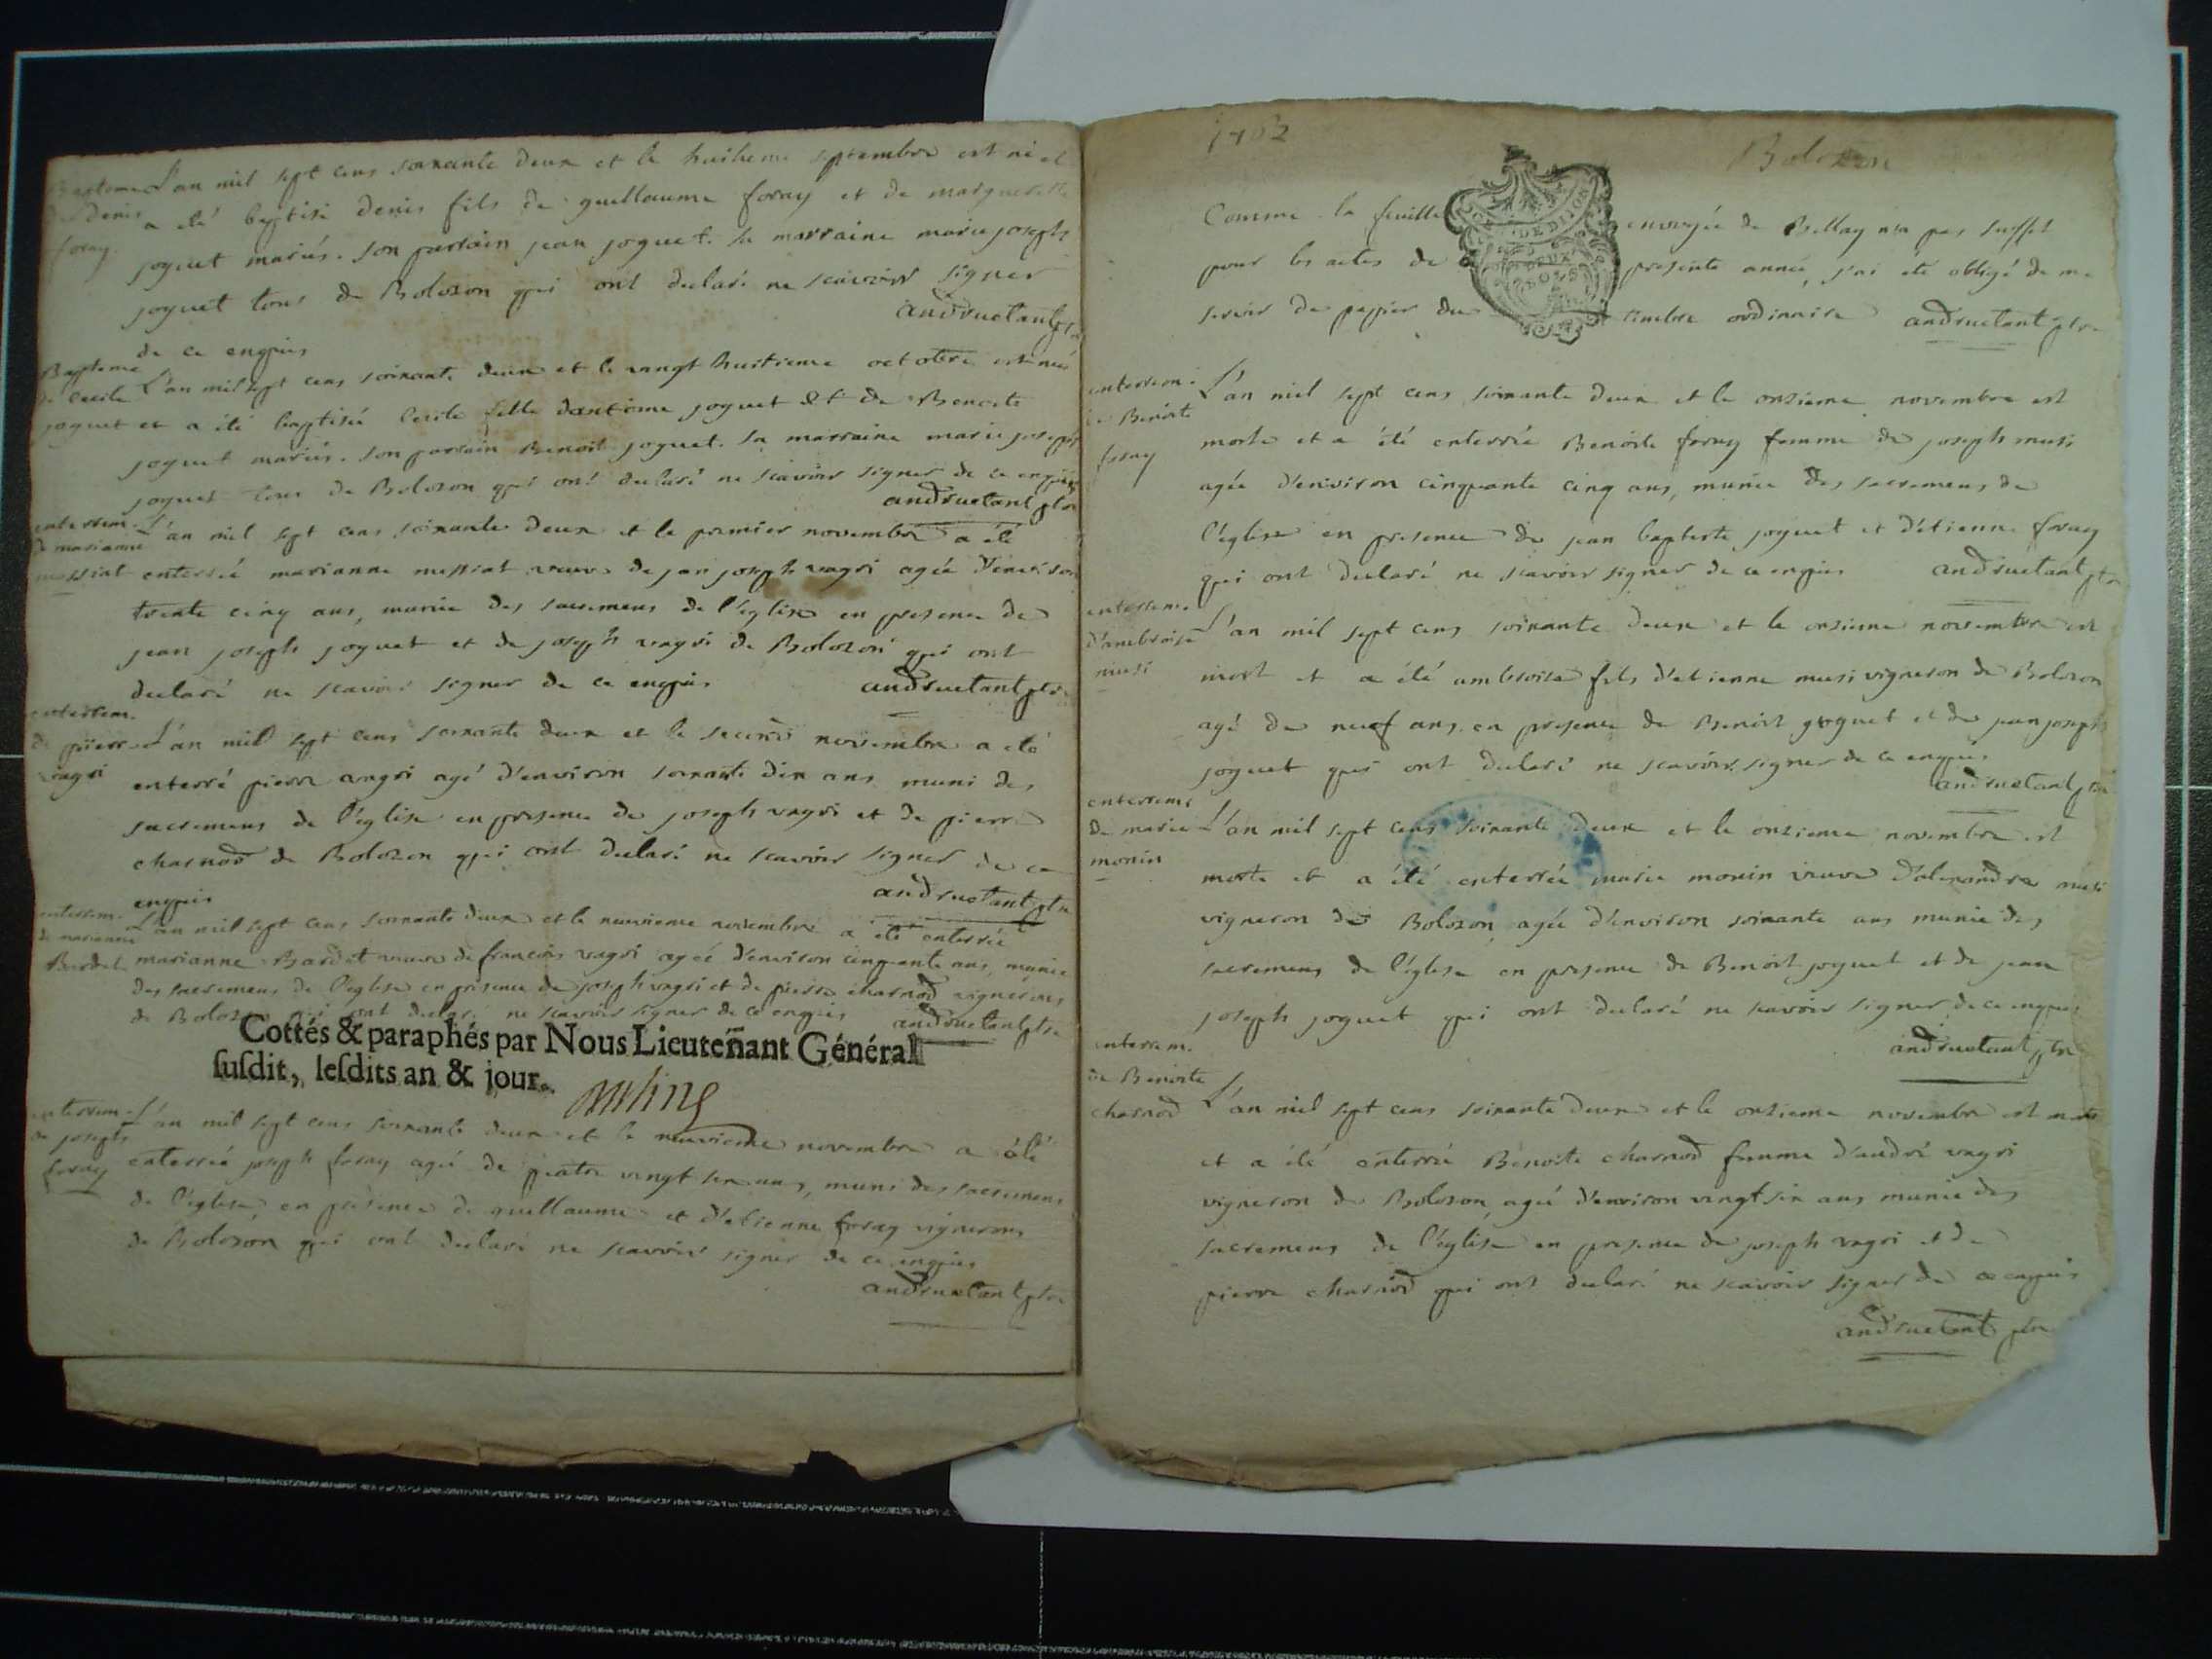 Bapteme L'an mil sept cens soixante deux et le huitieme septembre est né et
de denis a eté baptisé denis fils de guellaume foray et de marguerite
foray. joguet mariés. son parrain jean joguet. sa marraine marie joseph
joguet tous de Bolozon qui ont declaré ne scavoir signer
de ce enquis andructant ptre
Bapteme
de cecile L'an mil sept cens soixante deux et le vingt huitieme octobre est née
joguet et a été baptisée cecile fille dantoine joguet et de Benoite
joguet mariés. son parrain Benoit joguet. sa marraine marie joseph
joguet tous de Bolozon qui ont declaré ne scavoir signer de ce enquis
andructant ptre
enterrem. L'an mil sept cens soixante deux et le premier novembre a été
de marianne
messiat enterrée marianne messiat veuve de jean joseph vagri agée d'environ
trente cinq ans, munie des sacremens de l'eglise en presence de
jean joseph joguet et de joseph vagri de Bolozon qui ont
declaré ne scavoir signer de ce enquis andructant ptre
enterrem.
de pierre L'an mil sept cens soixante deux et le second novembre a eté
vagri enterré pierre vagri agé d'environ soixante dix ans muni des
sacremens de l'eglise en presence de joseph vagri et de pierre
charnod de Bolozon qui ont declaré ne scavoir signer de ce
enquis andructant ptre
enterrem. L'an mil sept cens soixante deux et le neuvieme novembre a été enterrée
de marianne
Bardet marianne Bardet veuve de francois vagri agée d'environ cinquante ans, munie
des sacremens de l'eglise en presence de joseph vagri et de pierre charnod vignerons
de Bolozon qui ont declaré ne scavoir signer de ce enquis andructant ptre
Cottés & paraphés par Nous Lieutenant Général
susdit, lesdits an & jour.
enterrem. L'an mil sept cens soixante deux et le neuvieme novembre a été
de joseph
foray enterrée joseph foray agé de quatre vingt six ans, muni des sacremens
de l'eglise, en presence de guellaume et d'etienne foray vignerons
de Bolozon qui ont declaré ne scavoir signer de ce enquis
andructant ptre
1762 Bolozon
Comme la feuille envoyée de Bellay n'a pas suffit
pour les actes de presente année, j'ai été obligé de me
servir de papier du timbre ordinaire andructant ptre
DE DIJON
DEUX
SOLS
enterrem. L'an mil sept cens soixante deux et le onzieme novembre est
de Benoite
foray morte et a été enterrée Benoite foray femme de joseph musi
agée d'environ cinquante cinq ans, munie des sacremens de
l'eglise en presence de jean baptiste joguet et d'etienne foray
qui ont declaré ne scavoir signer de ce enquis andructant ptre
enterrem.
d'ambroise L'an mil sept cens soixante deux et le onzieme novembre est
musi mort et a été ambroise fils d'etienne musi vigneron de Bolozon
agé de neuf ans en presence de Benoit joguet et de jean joseph
joguet qui ont declaré ne scavoir signer de ce enquis
andructant ptre
enterrem.
de marie L'an mil sept cens soixante deux et le onzieme novembre est
monin morte et a été enterrée marie monin veuve d'alexandre musi
vigneron de Bolozon, agée d'environ soixante ans munie des
sacremens de l'eglise en presence de Benoit joguet et de jean
joseph joguet qui ont declaré ne scavoir signer de ce enquis
andructant ptre
enterrem.
de Benoite
charnod L'an mil sept cens soixante deux et le onzieme novembre est morte
et a été enterrée Benoite charnod femme d'andré vagri
vigneron de Bolozon, agée d'environ vingt six ans munie des
sacremens de l'eglise en presence de joseph vagri et de
pierre charnod qui ont declaré ne scavoir signer de ce enquis
andructant ptre